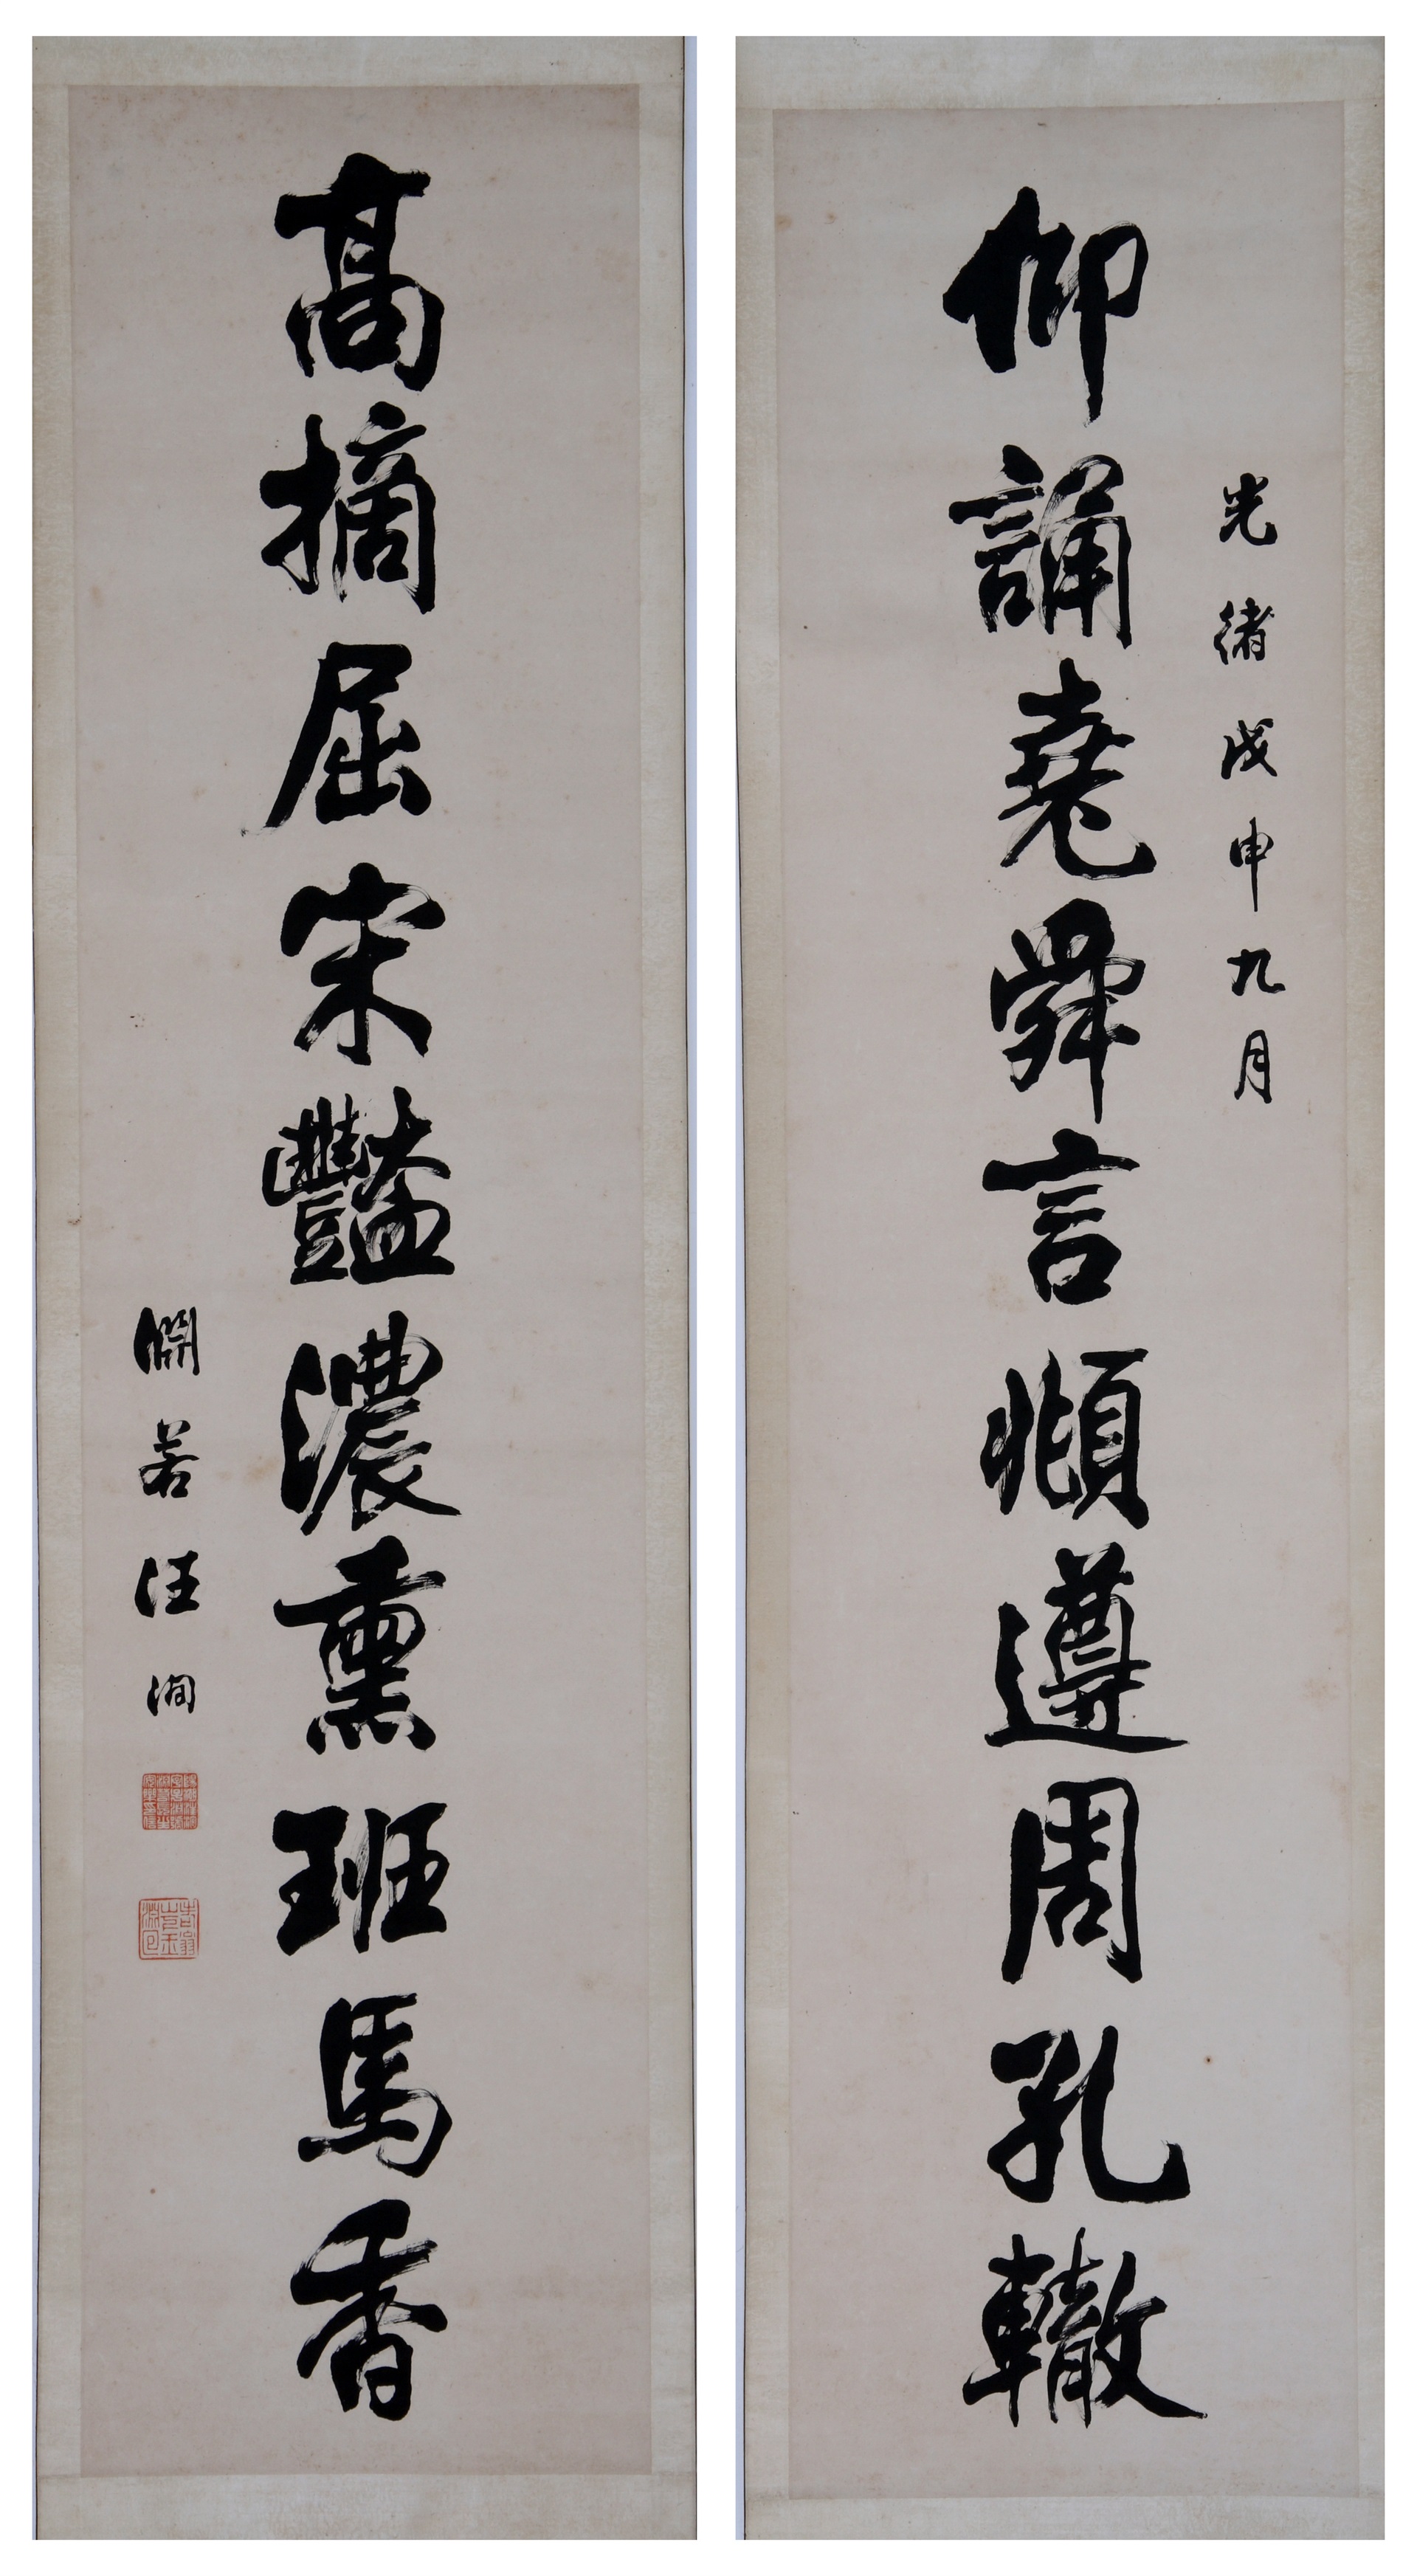 光緒戊申九月
仰誦堯舜言頫遵周孔轍
高摘屈宋豔濃熏班馬香
淵若汪洵